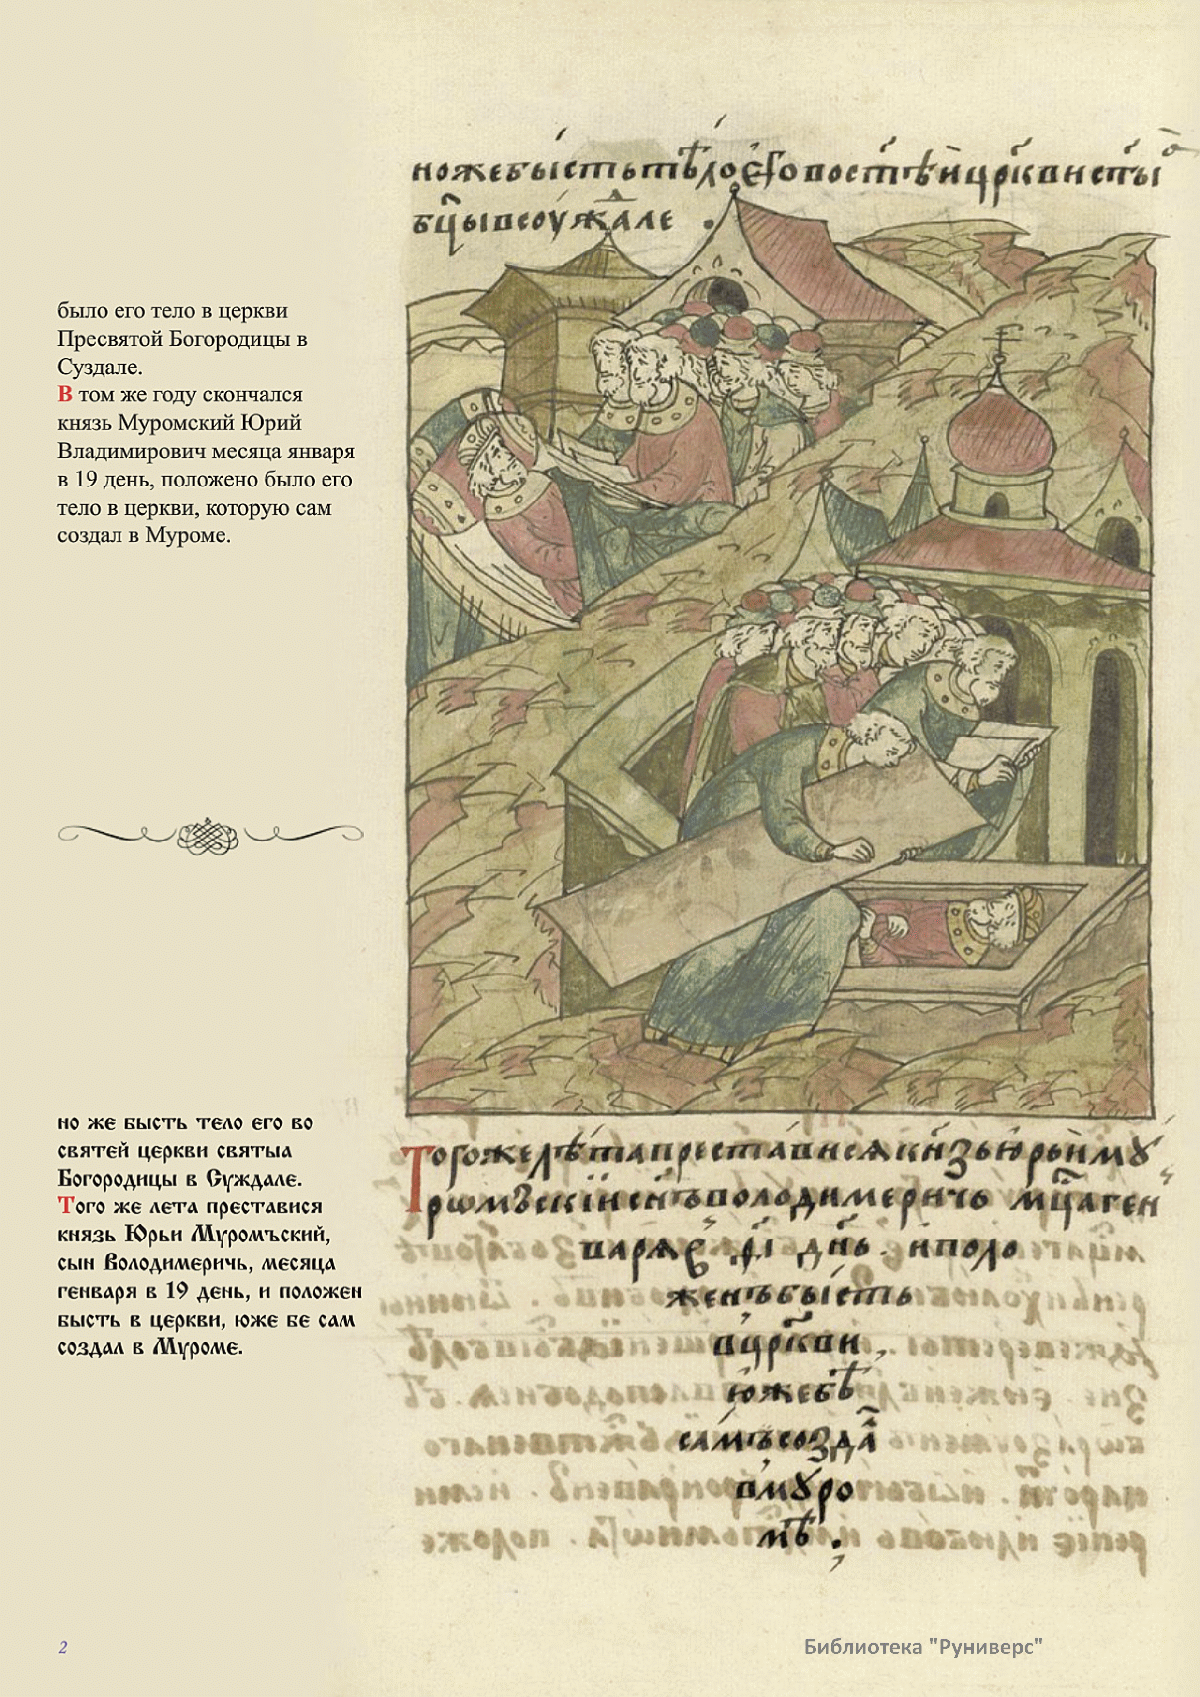 ножебыстьтѣлоѐговостѣйцр҃квист҃ы
бц҃ывсоужⷣале .
было его тело в церкви
Пресвятой Богородицы в
Суздале.
В том же году скончался
князь Муромский Юрий
Владимирович месяца января
в 19 день, положено было его
тело в церкви, которую сам
создал в Муроме.
но же бысть тело его во
святей церкви святыа
Богородицы в Суждале.
Того же лета преставися
князь Юрьи Муромъский,
сын Володимеричь, месяца
генваря в 19 день, и положен
бысть в церкви, юже бе сам
создал в Муроме.
Тогожелѣтапрестависякн҃зьюрьиму
рѡмъскіисн҃ъволодимеричь мц҃аген
варя д҃і дн҃ь . иполо
женъбысть
вцр҃кви ,
юженѣ
самъсозда
вмуро
мѣ .
2
Библиотека "Руниверс"